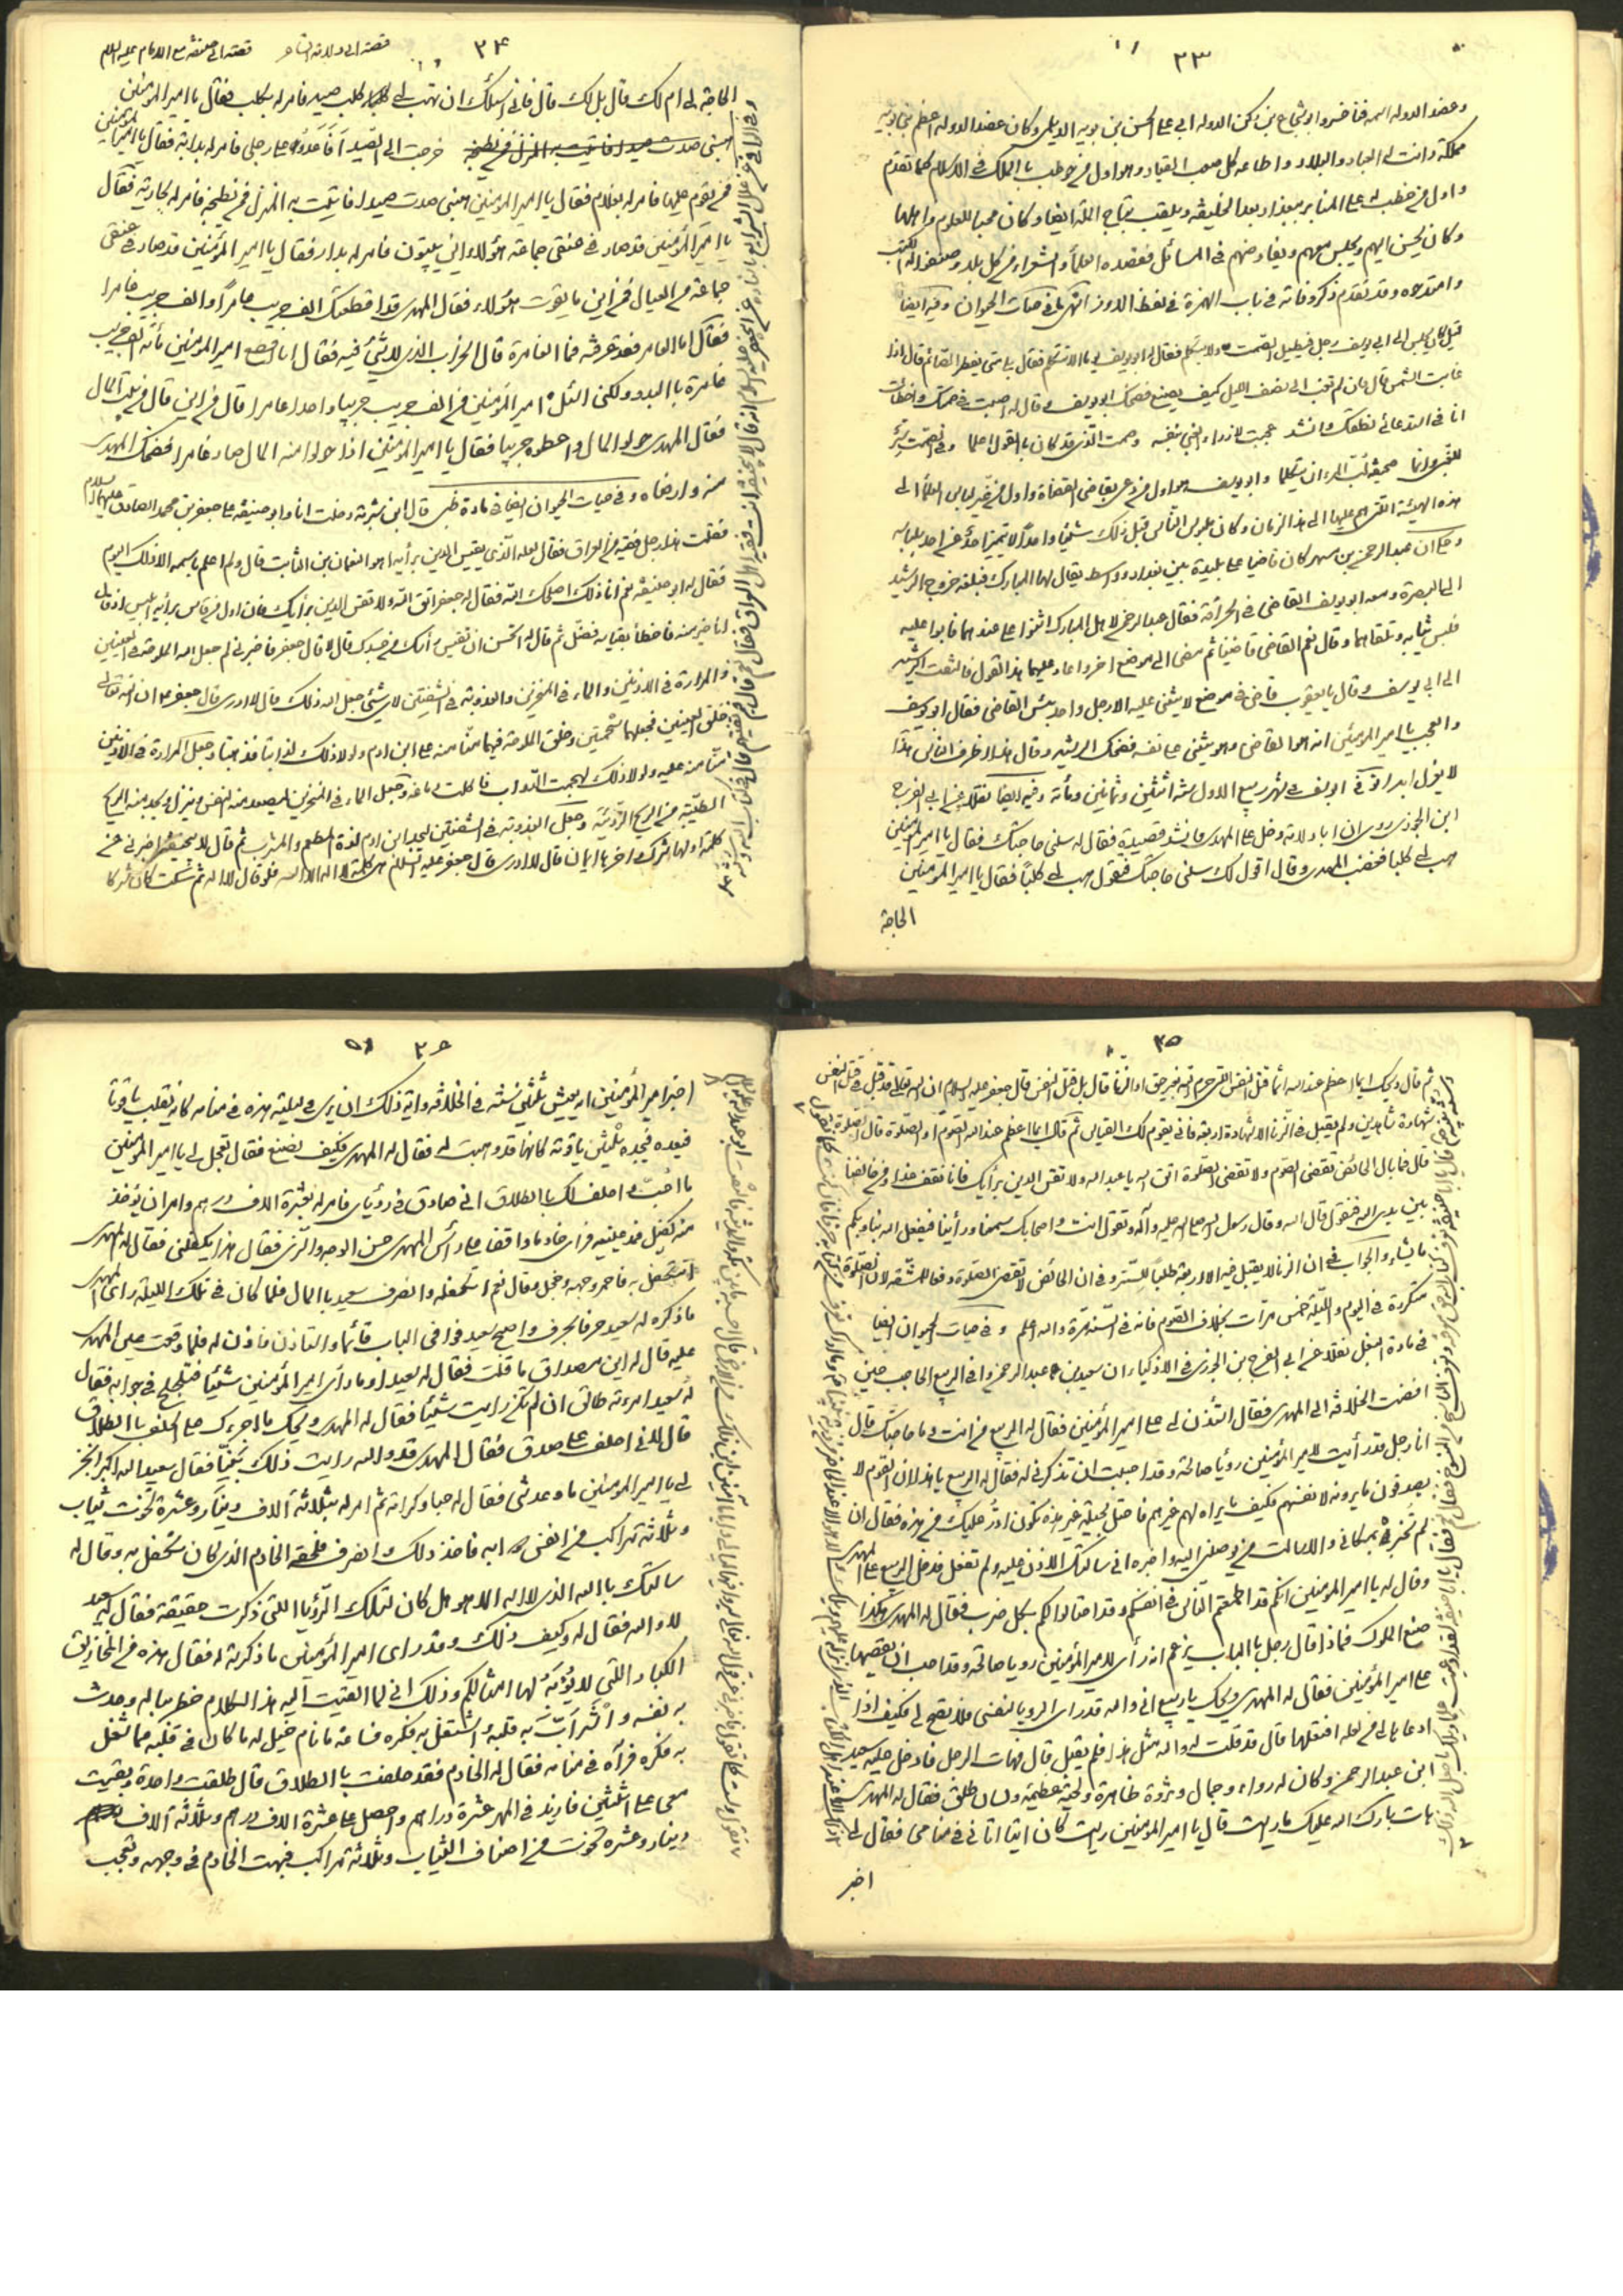 ٣٣
وعضد الدوله اسمه فناخسرو ابو شجاع بن ركن الدوله ابي علي الحسن بن بويه الديلمي وكان عضد الدوله اعظم بني بويه
مملكة ودانت له العباد والبلاد واطاعه كل صعب القياد وهو اول من خوطب بالملك في الاسلام كما تقدم
واول من خطب له على المنابر ببغداد بعد الخليفة ويلقب بتاج الملة ايضا وكان محبا للعلوم واهلها
وكان يحسن اليهم ويجلس معهم ويعارضهم في المسائل فقصده العلماء والشعراء من كل بلد وصنفوا له الكتب
وامتدحوه وقد تقدم ذكر وفاته في باب الهمزة في لفظ الاوز انتهى ما في حيات الحيوان وفيه ايضا
قيل كان يجلس الى ابي يوسف رجل فيطيل الصمت ولا يتكلم فقال له ابو يوسف يوما الا تتكلم فقال بلى متى يفطر الصائم قال اذا
غابت الشمس قال فان لم تغب الى نصف الليل كيف يصنع فضحك ابو يوسف وقال له اصبت في صمتك واخطأت
انا في استدعائي نطقك وانشد عجبت لازراء الغبي بنفسه وصمت الذي قد كان بالقول اعلما وفي الصمت ستر
للغبي وانما صحيفة لب المرء ان يتكلما وابو يوسف هو اول من دعي بقاضي القضاة واول من غير لباس العلماء الى
هذه الهيئة التي هم عليها الى هذا الزمان وكان ملبوس الناس قبل ذلك شيئا واحدا لا يتميز احد عن احد بلباسه
وحكي ان عبد الرحمن بن مسهر كان قاضيا على بليدة بين بغداد وواسط يقال لها المبارك فبلغه خروج الرشيد
الى البصرة ومعه ابو يوسف القاضي في الحراقة فقال عبد الرحمن لاهل المبارك اثنوا علي عندهما فابوا عليه
فلبس ثيابه وتلقاهما وقال نعم القاضي قاضينا ثم مضى الى موضع اخر واعاد عليهما هذا القول فالتفت الرشيد
الى ابي يوسف وقال يا يعقوب قاض في موضع لا يثني عليه الا رجل واحد بئس القاضي فقال ابو يوسف
والعجب يا امير المؤمنين انه هو القاضي وهو يثني على نفسه فضحك الرشيد وقال هذا اظرف الناس هذا
لا يعزل ابدا توفي ابو يوسف في شهر ربيع الاول سنة اثنتين وثمانين ومائة وفيه ايضا نقلا عن ابي الفرج
ابن الجوزي روى ان ابا دلامة دخل على المهدي فانشد قصيدة فقال له سلني حاجتك فقال يا امير المؤمنين
هب لي كلبا فغضب المهدي وقال اقول لك سلني حاجتك فتقول هب لي كلبا فقال يا امير المؤمنين
الحاجة
٣٤
قصة ابي دلامة الشاعر
قصة ابي حنيفة مع الامام عليه السلام
الحاجة لي ام لك قال بل لك قال فاني اسئلك ان تهب لي كلب صيد فامر له بكلب فقال يا امير المؤمنين
خرجت الى الصيد أفأعدو على رجلي فامر له بدابة فقال يا امير المؤمنين
فمن يقوم عليها فامر له بغلام فقال يا امير المؤمنين هبني صدت صيدا فاتيت به المنزل فمن يطبخه فامر له بجارية فقال
يا امير المؤمنين قد صار في عنقي جماعة هؤلاء اين يبيتون فامر له بدار فقال يا امير المؤمنين قد صار في عنقي
جماعة من العيال فمن اين ما يقوت هؤلاء فقال المهدي قد اقطعتك الف جريب عامرا والف جريب غامرا
فقال اما العامر فقد عرفته فما الغامرة قال الخراب الذي لا شئ فيه فقال انا اقطع امير المؤمنين مائة الف جريب
غامرة بالبدو ولكني اسئل امير المؤمنين من الف جريب جريبا واحدا عامرا قال من اين قال من بيت المال
فقال المهدي حولوا المال واعطوه جريبا فقال يا امير المؤمنين اذا حولوا منه المال صار غامرا فضحك المهدي
منه وارضاه وفي حيات الحيوان ايضا في مادة ظبي قال ابن شبرمة دخلت انا وابو حنيفة على جعفر بن محمد الصادق عليهما السلام
فقلت هذا رجل فقيه من العراق فقال لعله الذي يقيس الدين برأيه اهو النعمان بن الثابت قال ولم اعلم باسمه الا ذلك اليوم
فقال له ابو حنيفة نعم انا ذلك اصلحك الله فقال له جعفر اتق الله ولا تقس الدين برأيك فان اول من قاس برأيه ابليس اذ قال
انا خير منه فاخطأ بقياسه فضل ثم قال له اتحسن ان تقيس رأسك من جسدك قال لا قال جعفر فاخبرني لم جعل الله الملوحة في العينين
والمرارة في الاذنين والماء في المنخرين والعذوبة في الشفتين لاي شئ جعل الله ذلك قال لا ادري قال جعفر ان الله تعالى
خلق العينين فجعلهما شحمتين وخلق الملوحة فيهما منا منه على ابن ادم ولولا ذلك لذابتا فذهبتا وجعل المرارة في الاذنين
منا منه عليه ولولا ذلك لهجمت الدواب فاكلت دماغه وجعل الماء في المنخرين ليصعد منه النفس وينزل ويجد منه الريح
الطيبة من الريح الردية وجعل العذوبة في الشفتين ليجد ابن ادم لذة المطعم والمشرب ثم قال لابي حنيفة اخبرني عن
كلمة اولها شرك واخرها ايمان قال لا ادري قال جعفر عليه السلام هي كلمة لا اله الا الله فلو قال لا اله ثم سكت كان شركا
٣٥
ثم قال ويحك ايما اعظم عند الله اثما قتل النفس التي حرم الله بغير حق او الزنا قال بل قتل النفس قال جعفر عليه السلام ان الله تعالى قد قبل في قتل النفس
شهادة شاهدين ولم يقبل في الزنا الا شهادة اربعة فانى يقوم لك القياس ثم قال ايما اعظم عند الله الصوم او الصلوة قال الصلوة
قال فما بال الحائض تقضي الصوم ولا تقضي الصلوة اتق الله يا عبد الله ولا تقس الدين برأيك فانا نقف غدا ومن خالفنا
بين يدي الله فنقول قال الله وقال رسول الله صلى الله عليه وآله وتقول انت واصحابك سمعنا ورأينا فيفعل الله بنا وبكم
ما يشاء والجواب في ان الزنا لا يقبل فيه الا اربعة طلبا للستر وفي ان الحائض لا تقضي الصلوة دفعا للمشقة لان الصلوة
متكررة في اليوم والليلة خمس مرات بخلاف الصوم فانه في السنة مرة والله اعلم وفي حيات الحيوان ايضا
في مادة البغل نقلا عن ابي الفرج بن الجوزي في الاذكياء ان سعيد بن عبد الرحمن وافى الربيع الحاجب حين
افضت الخلافة الى المهدي فقال استأذن لي على امير المؤمنين فقال له الربيع من انت وما حاجتك قال
انا رجل قد رأيت لامير المؤمنين رؤيا صالحة وقد احببت ان تذكرني له فقال له الربيع يا هذا ان القوم لا
يصدقون ما يرونه لانفسهم فكيف ما يراه لهم غيرهم فاحتل بحيلة غير هذه تكون ادر عليك من هذه فقال ان
لم تخبره بمكاني والا سالت من يوصلني اليه واخبره اني سالتك الاذن عليه ولم تفعل فدخل الربيع على المهدي
وقال له يا امير المؤمنين انكم قد اطمعتم الناس في انفسكم وقد احتالوا لكم بكل ضرب فقال له المهدي هكذا
صنع الملوك فماذا قال رجل بالباب يزعم انه رأى لامير المؤمنين رويا صالحة وقد احب ان يقصها
على امير المؤمنين فقال له المهدي ويحك يا ربيع اني والله قد ارى الرويا لنفسي فلا تصح لي فكيف اذا
ادعاها لي من لعله افتعلها قال قد قلت له والله مثل هذا فلم يقبل قال فهات الرجل فادخل عليه سعيد
ابن عبد الرحمن وكان له رواء وجمال وثروة ظاهرة ولحية عظيمة ولسان طلق فقال له المهدي
هات بارك الله عليك ما رايت قال يا امير المؤمنين رايت كان اتيا اتاني في منامي فقال لي
اخبر
٣٦
اخبر امير المؤمنين انه يعيش ثلثين سنة في الخلافة واية ذلك ان يرى في ليلته هذه في منامه كانه يقلب ياقوتا
فيعده فيجده ثلثين ياقوتة كانها قد وهبت له فقال له المهدي فكيف نصنع فقال تعجل لي يا امير المؤمنين
ما احب واحلف لك بالطلاق اني صادق في رؤياي فامر له بعشرة الاف درهم وامر ان يؤخذ
منه كفيل فمد عينيه فراى خادما واقفا على رأس المهدي حسن الوجه والزي فقال هذا يكفلني فقال له المهدي
اتتكفل به فاحمر وجهه وخجل وقال نعم اتكفله وانصرف سعيد بالمال فلما كان في تلك الليلة راى المهدي
ما ذكره له سعيد حرفا بحرف واصبح سعيد فوافى الباب قائما واستاذن فاذن له فلما وقعت عين المهدي
عليه قال له اين مصداق ما قلت فقال له سعيد او ما رأى امير المؤمنين شيئا فتلجلج في جوابه فقال
له سعيد امرءته طالق ان لم تكن رايت شيئا فقال له المهدي ويحك ما اجرءك على الحلف بالطلاق
قال لاني احلف على صدق فقال المهدي قد والله رايت ذلك بينا فقال سعيد الله اكبر انجز
لي يا امير المؤمنين ما وعدتني فقال له حبا وكرامة ثم امر له بثلاثة آلاف دينار وعشرة تخوت ثياب
وثلاثة مراكب من انفس دوابه فاخذ ذلك وانصرف فلحقه الخادم الذي كان تكفل به وقال له
سالتك بالله الذي لا اله الا هو هل كان لتلك الرؤيا اللتي ذكرت حقيقة فقال له سعيد
لا والله فقال له وكيف ذلك وقد راى امير المؤمنين ما ذكرته له فقال هذه من المخاريق
الكبار اللتي لا يؤبه لها امثالكم وذلك اني لما القيت اليه هذا الكلام خطر بباله وحدث
به نفسه واشرأب به قلبه واشتغل به فكره فساعة ما نام خيل له ما كان في قلبه مما شغل
به فكره فرآه في منامه فقال له الخادم فقد حلفت بالطلاق قال طلقت واحدة وبقيت
معي على اثنتين فازيد في المهر عشرة دراهم واحصل على عشرة الاف درهم وثلاثة آلاف
دينار وعشرة تخوت من اصناف الثياب وثلاثة مراكب فبهت الخادم في وجهه وتعجب